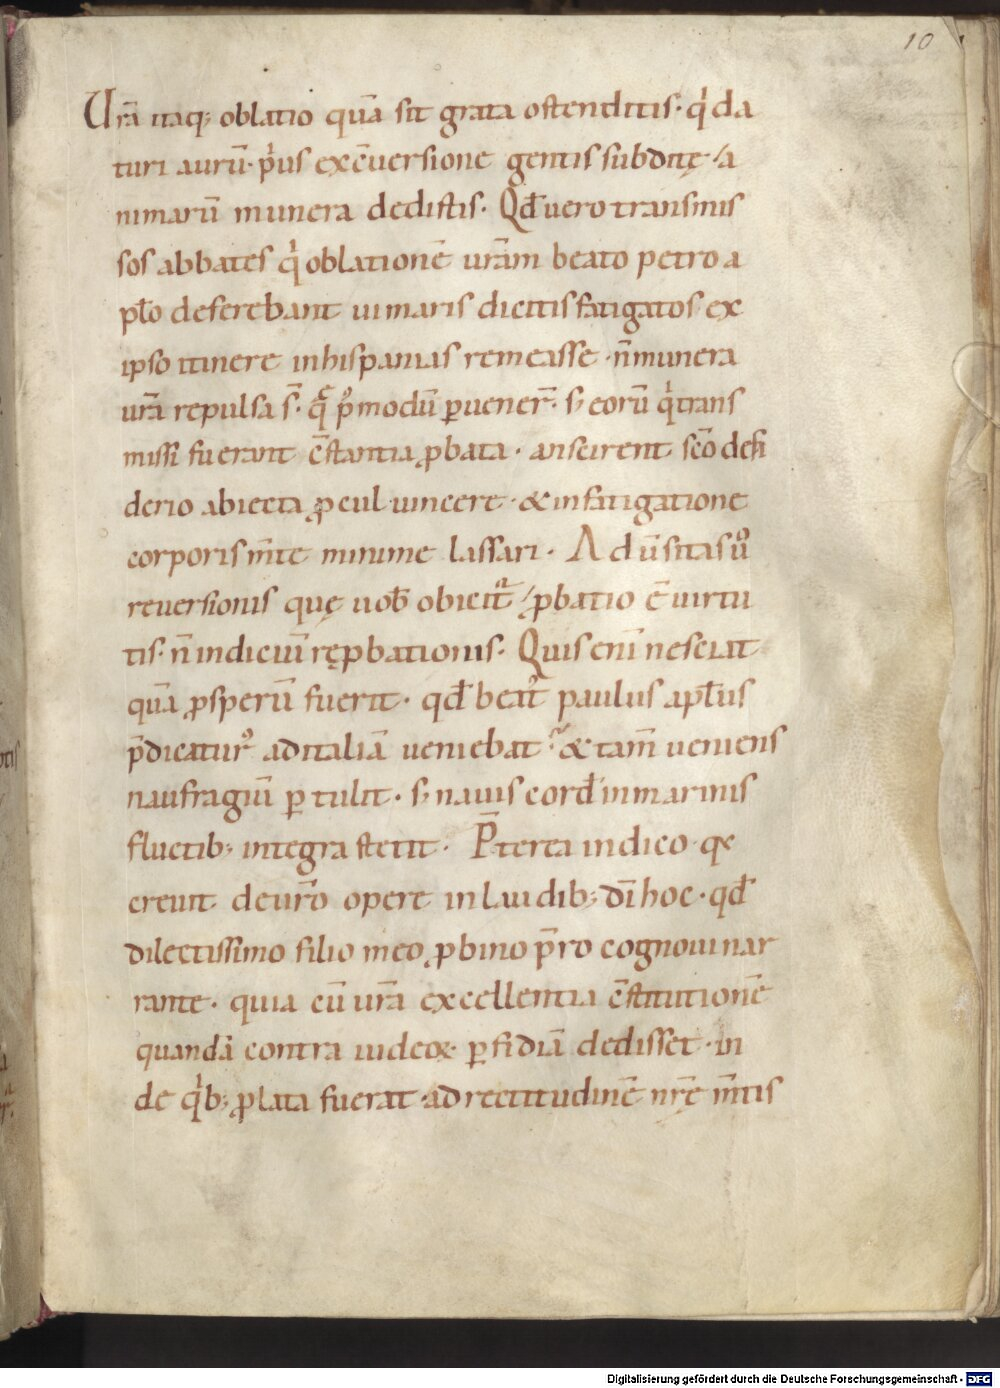 10
Ur̄a itaq; oblatio quā sit grata ostenditis· qͥ da
turi aurū· pͥus ex c̄uersione gentis subditę· a
nimarū munera dedistis· Qd̄ uero transmis
sos abbates qͥ oblationē ur̄am beato petro a
pl̄o deferebant ui maris dicitis fatigatos ex
ipso itinere in hispanias remeasse· n̄ munera
ur̄a repulsa s̄· q̄ pͦmodū ꝑuener̄· s; eorū qͥ trans
missi fuerant c̄stantia ꝓbata· an scirent sc̄o desi
derio abiecta ꝓcul uincere· & in fatigatione
corporis m̄te minime lassari· Adūsitas ūͦ
reuersionis quę uob̄ obicit᷑ ꝓbatio ē uirtu
tis· n̄ indiciū rępbationis· Quis eni nesciat
quā ꝓsperū fuerit· qd̄ beat᷒ paulus apl̄us
p̄dicatur᷒ ad italiā ueniebat· & tam̄ ueniens
naufragiū ꝑtulit· s; nauis cord̄ in marinis
fluctib; integra stetit· P̄terea indico q̨
creuit de ur̄o opere in laudib; dī hoc· qd̄
dilectissimo filio meo ꝓbino p̄ro cognoui nar
rante· quia cū ur̄a excellentia c̄stitutionē
quandā contra iudeoꝝ ꝑfidiā dedisset· in
de qͥb; ꝓlata fuerat· ad rectitudinē nr̄ę m̄tis
Digitalisierung gefördert durch die Deutsche Forschungsgemeinschaft - DFG